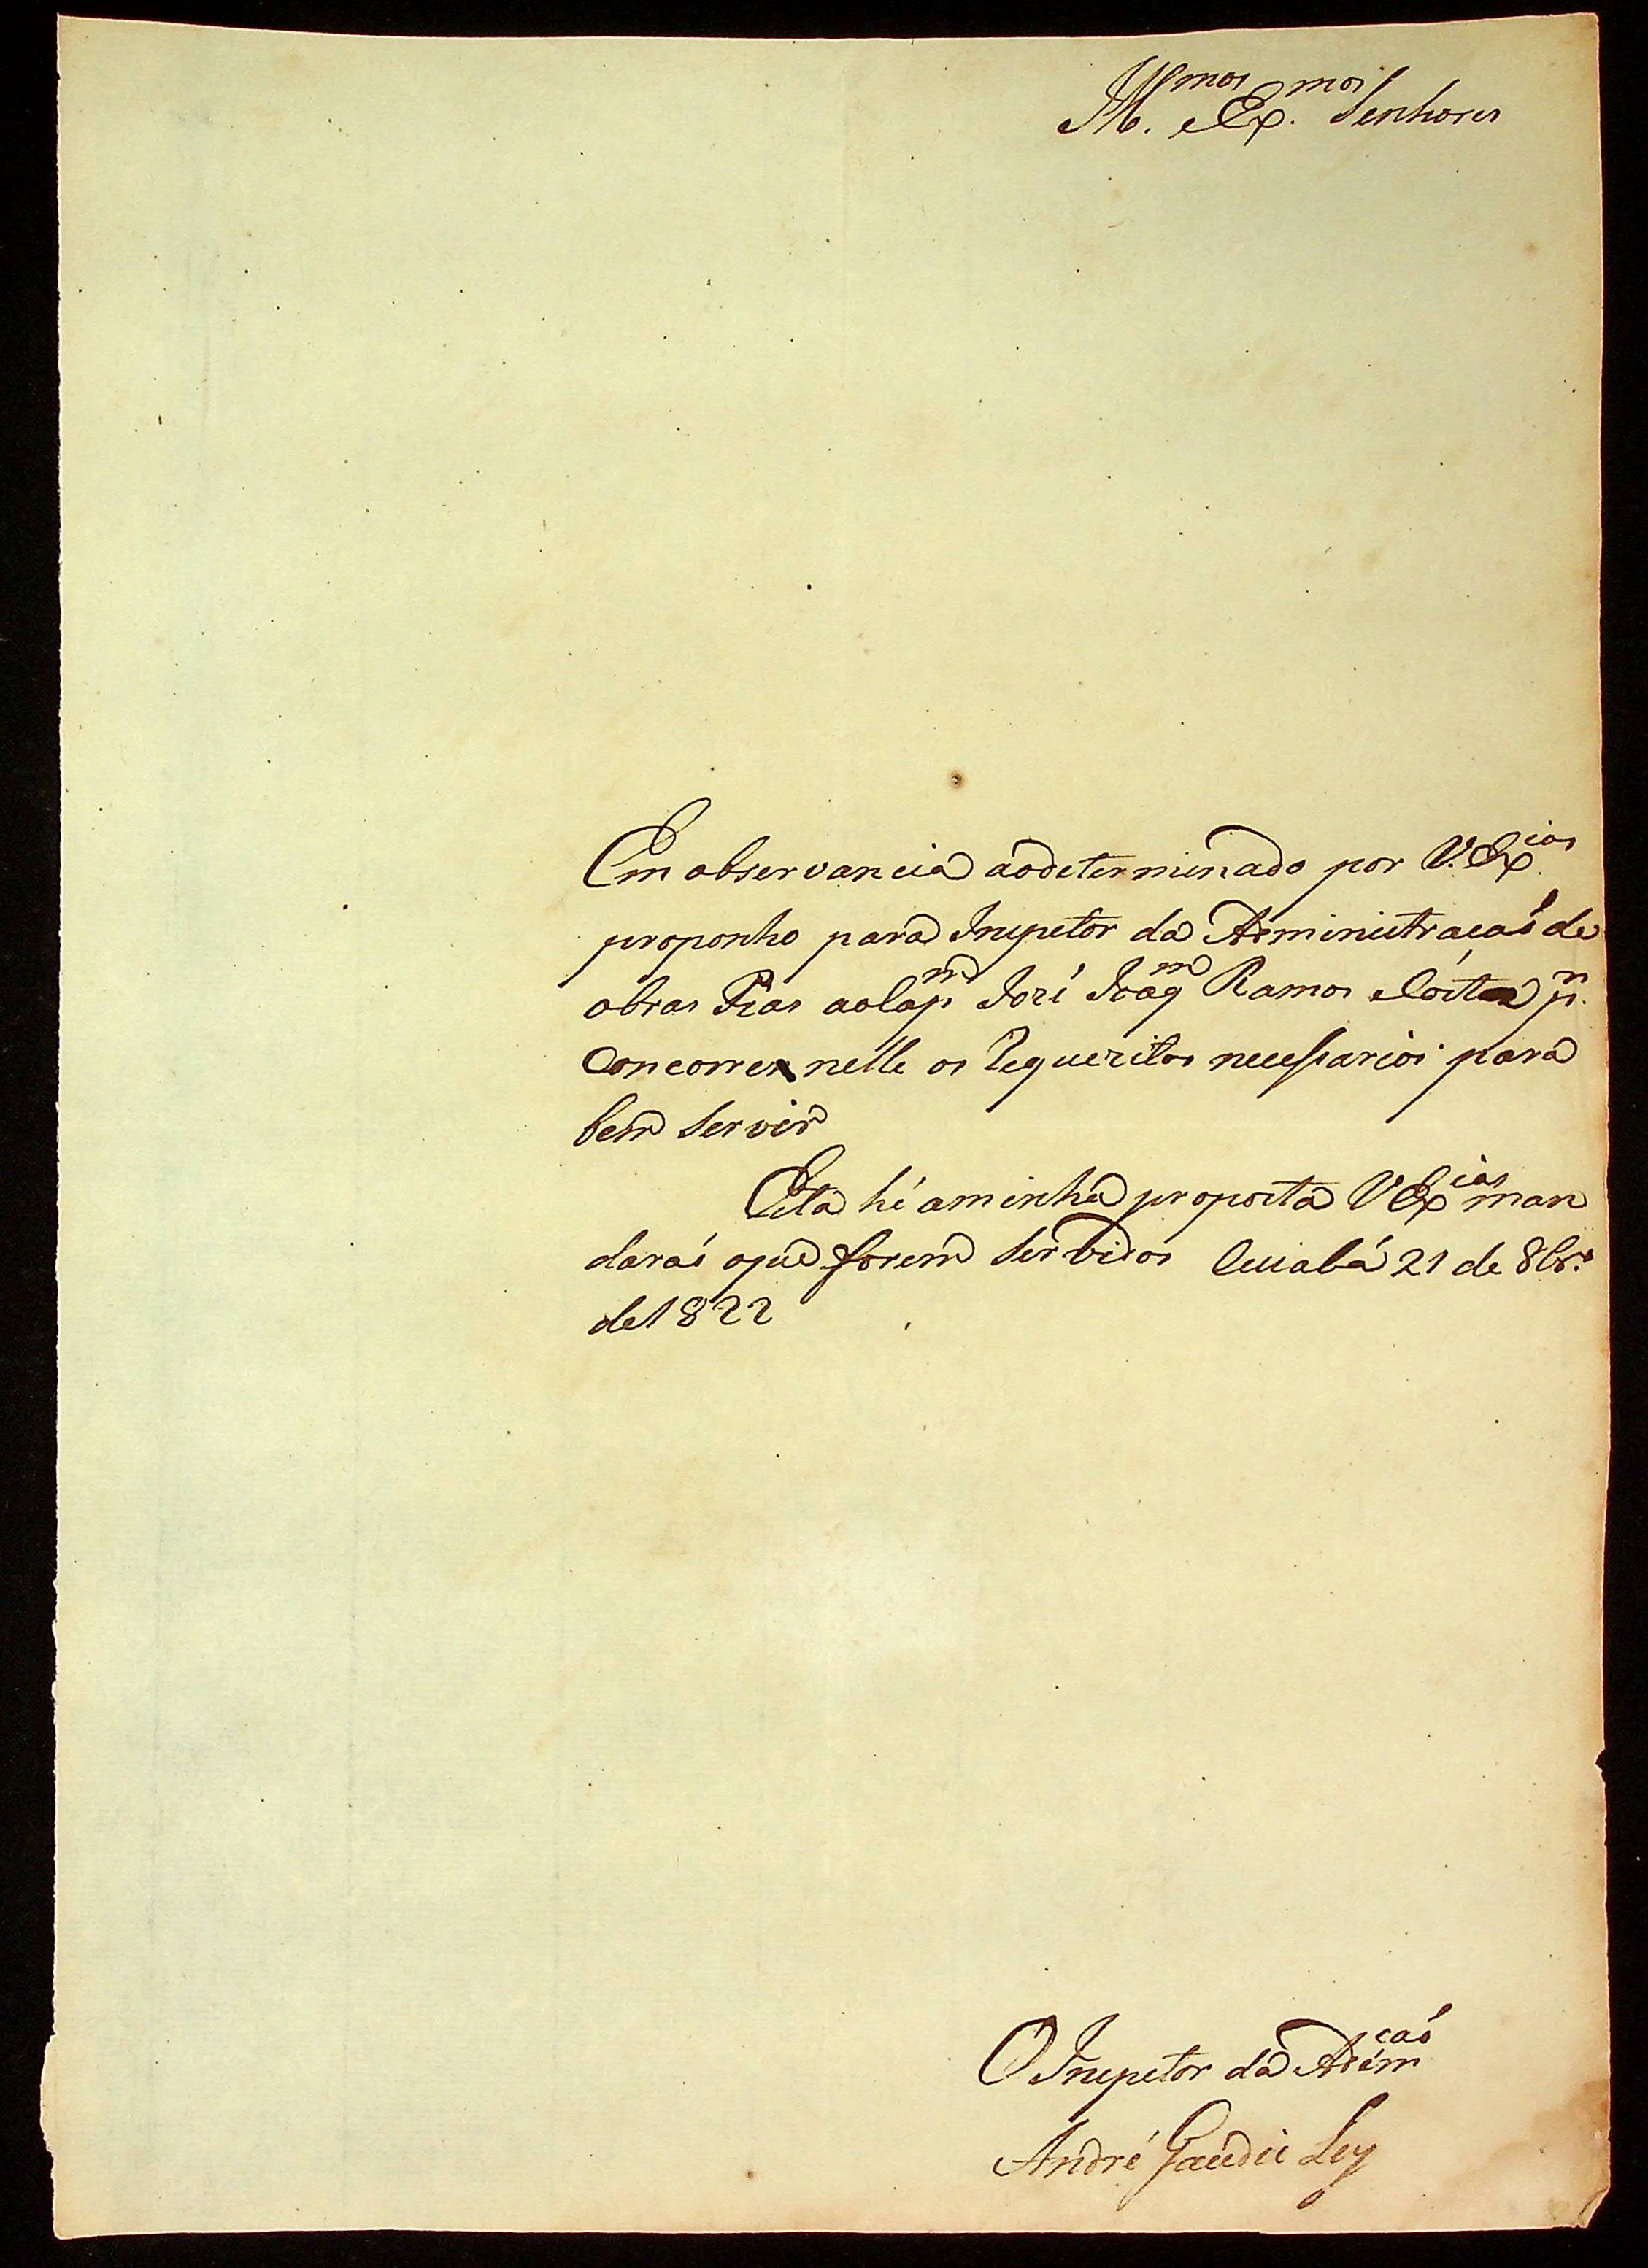 Ill.mos Ex.mos Senhores
Em observancia ao determinado por V. Ex.cias
proponho para Inspetor da Administracaõ de
obras Pias ao Cap.m José Joaq.m Ramos e Costa p.r
Concorrer nelle os Requezitos necessarios para
bem Servir
Esta hé aminha proposta V Ex.cias man
daraó oque forem Servidos Cuiabá 21 de 8br.o
de 1822
O Inspetor da Adém.caó
André Gaudie Ley